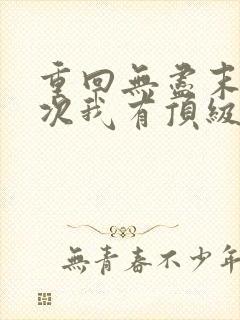 重回無盡末
次我有頂級
無青春不少年